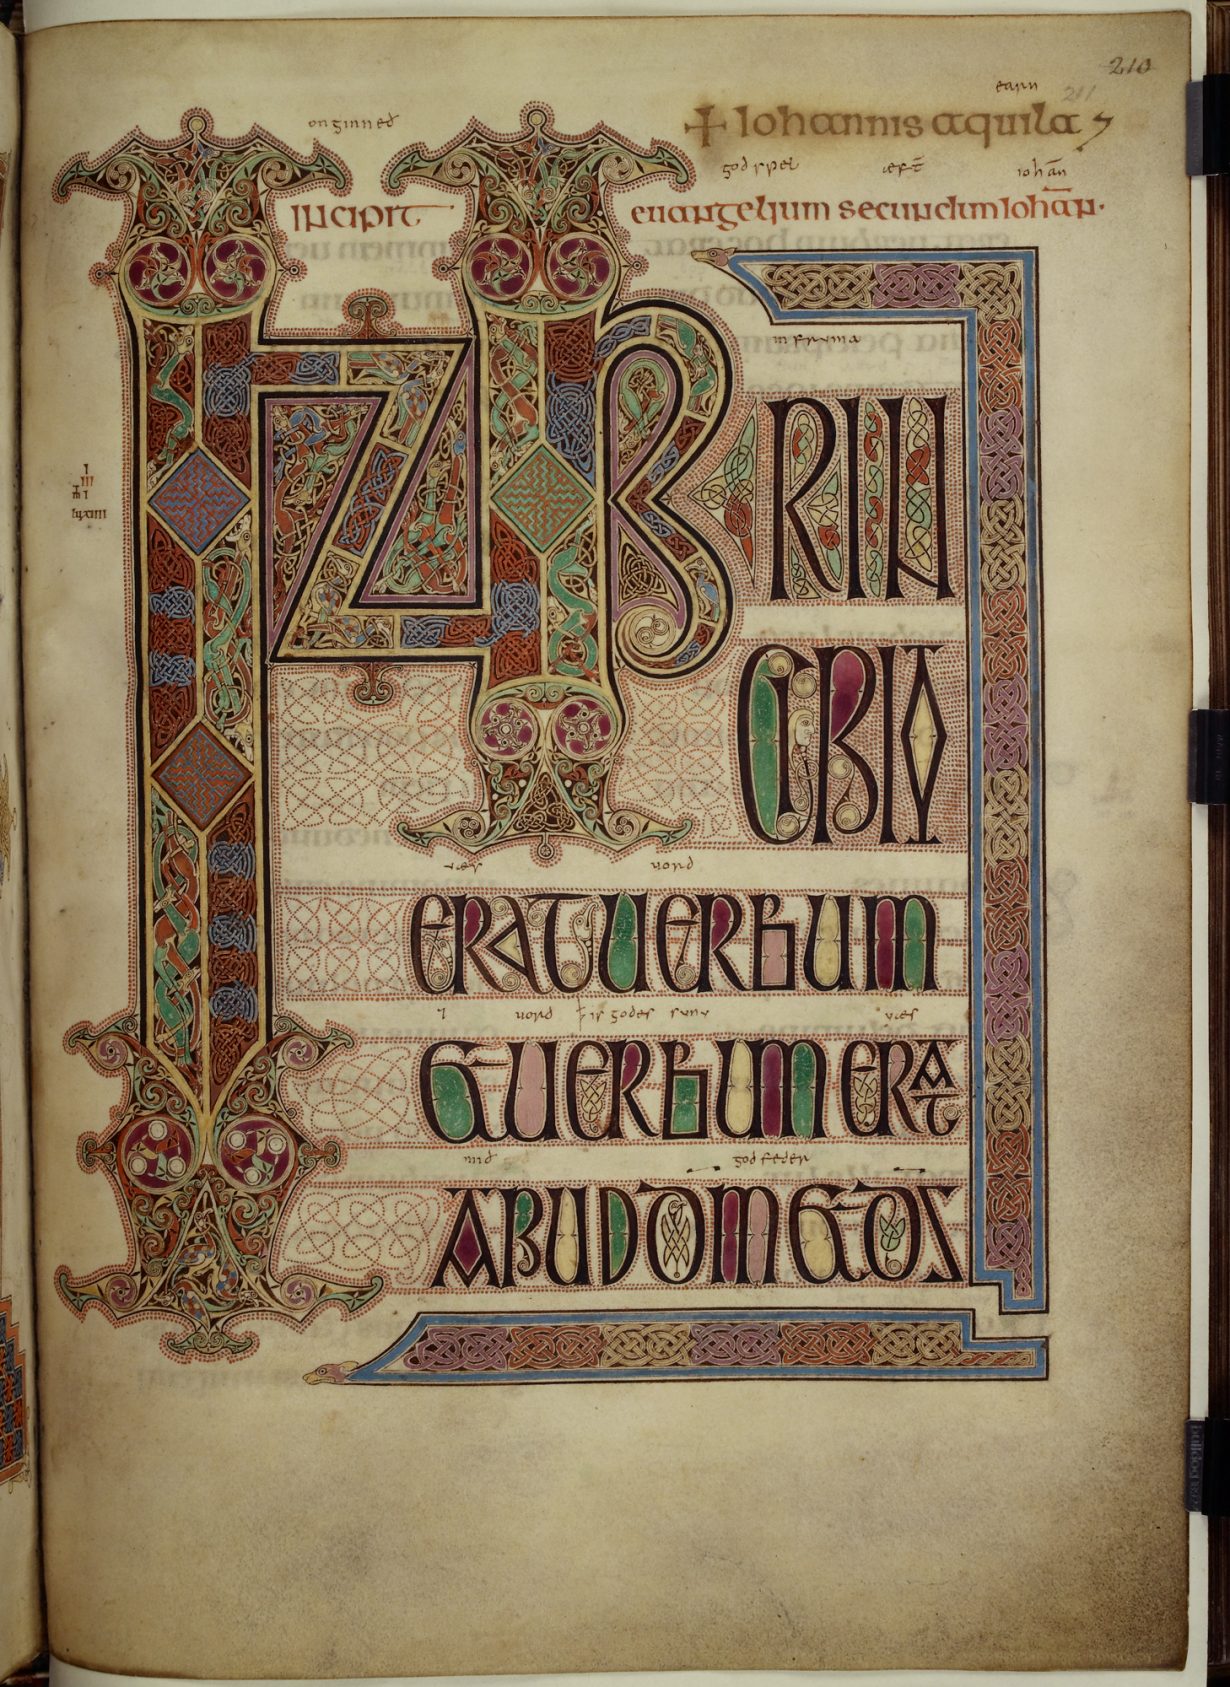 210
211
earn
+ Iohannis aquila
onginneð
godspel æft̄ iohan̄
incipit euangelium secundum Iohan̄.
in fruma
INPRIN
CIPIO
wæs word
ERAT UERBUM
⁊ word ꝉ is godes sunu wæs
ET UERBUM ERAT
mið god feder
APUD D̄M ET D̄S